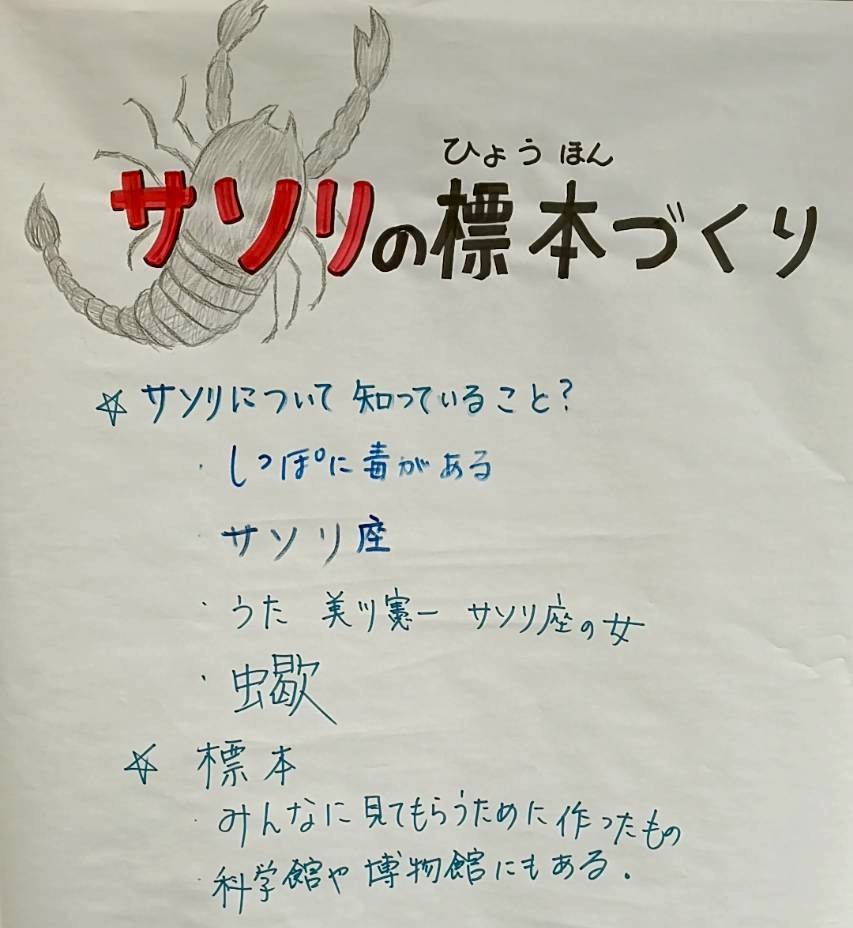 ひょうほん
サソリの標本づくり
☆ サソリについて 知っていること?
・しっぽに毒がある
・サソリ座
・うた 美川憲一 サソリ座の女
・蠍
☆ 標本
・みんなに見てもらうために作ったもの
・科学館や博物館にもある.